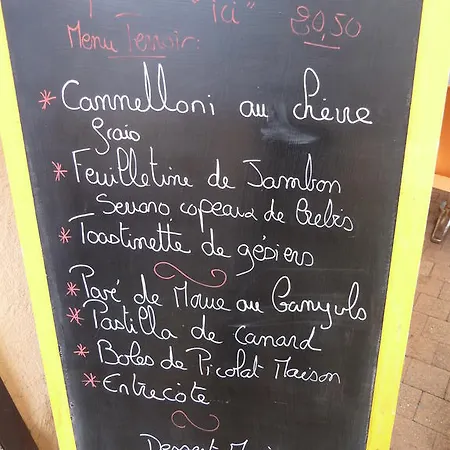 "ici" 20,50
Menu Terroir:
* Cannelloni au chèvre
frais
* Feuilletine de Jambon
Serrano, copeaux de Brebis
* Toastinette de gésiers
* Pavé de Morue au Banyuls
* Pastilla de Canard
* Boles de Picolat Maison
* Entrecôte
Dessert